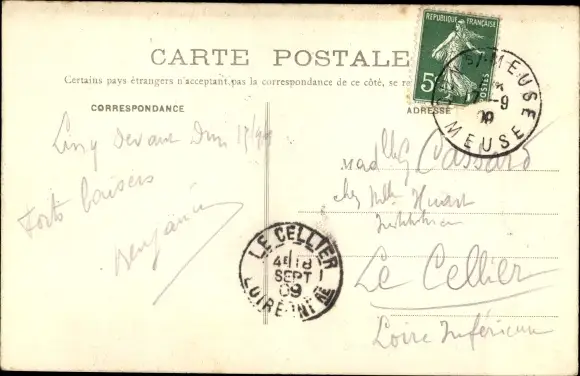 CARTE POSTALE
Certains pays étrangers n'acceptant pas la correspondance de ce côté, se re
CORRESPONDANCE
ADRESSE
REPUBLIQUE FRANÇAISE
5
POSTES
MEUSE
9
09
MEUSE
Liny devant Dun 17/9/09
Forts baisers
Benjamin
Mad lles Cassard
chez Mlle Huart
Institutrice
Le Cellier
Loire Inférieure
LE CELLIER
18
SEPT
09
LOIRE INFRE